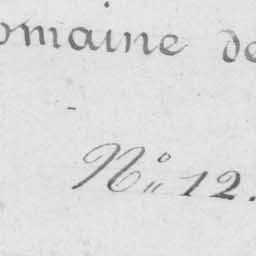 omaine de
N° 12.